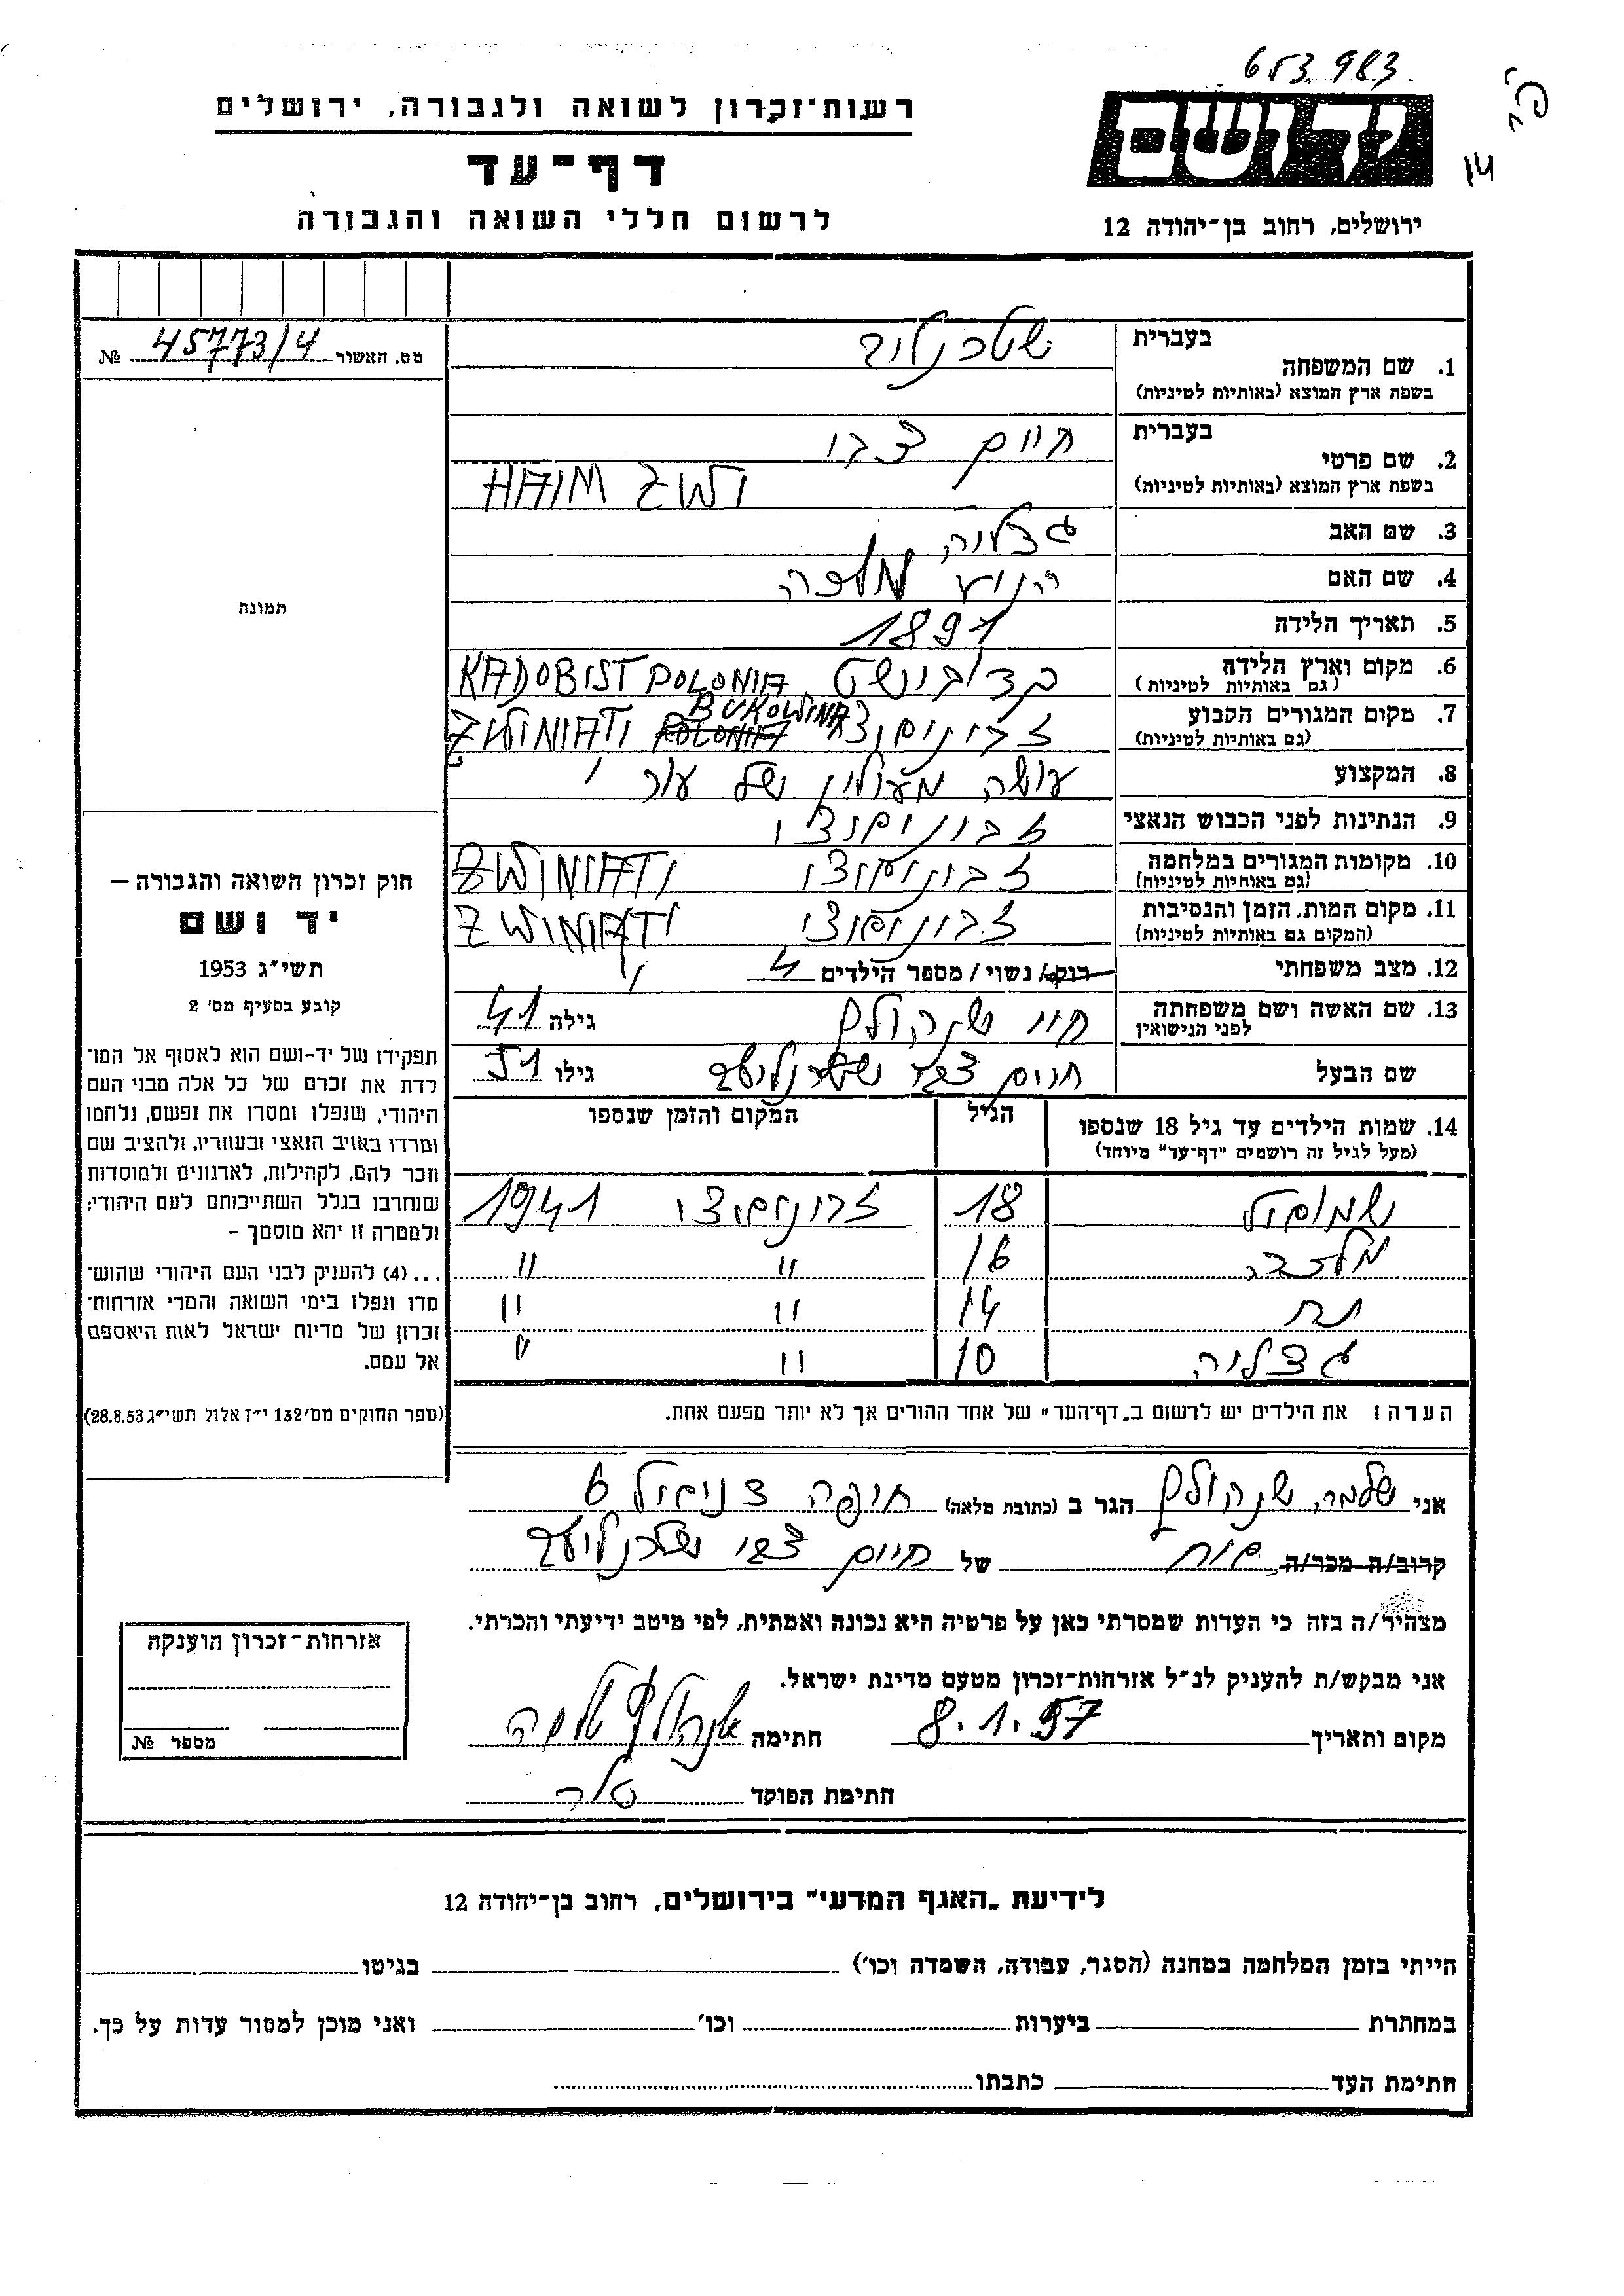 653983
רשות־זכרון לשואה ולגבורה, ירושלים
יד ושם
14
דף־עד
לרשום חללי השואה והגבורה
ירושלים, רחוב בן־יהודה 12
מס. האשור 45773/4 №
תמונה
חוק זכרון השואה והגבורה –
יד ושם
תשי״ג 1953
קובע בסעיף מס׳ 2
תפקידו של יד-ושם הוא לאסוף אל המו־
לדת את זכרם של כל אלה מבני העם
היהודי, שנפלו ומסרו את נפשם, נלחמו
ומרדו באויב הנאצי ובעוזריו, ולהציב שם
וזכר להם, לקהילות, לארגונים ולמוסדות
שנחרבו בגלל השתייכותם לעם היהודי;
ולמטרה זו יהא מוסמך –
...(4) להעניק לבני העם היהודי שהוש־
מדו ונפלו בימי השואה והמרי אזרחות־
זכרון של מדינת ישראל לאות היאספם
אל עמם.
(ספר החוקים מס׳ 132 י״ז אלול תשי״ג 28.8.53)
בעברית
1. שם המשפחה
בשפת ארץ המוצא (באותיות לטיניות)
בעברית חיים צבי
2. שם פרטי
בשפת ארץ המוצא (באותיות לטיניות) HAIM ZWI
3. שם האב גדליה
4. שם האם מלכה
5. תאריך הלידה 1891
6. מקום וארץ הלידה KADOBIST POLONIA
(גם באותיות לטיניות)
7. מקום המגורים הקבוע BUKOWINA ZWINIATI POLONIA
(גם באותיות לטיניות)
8. המקצוע עושה מעילין של עור
9. הנתינות לפני הכבוש הנאצי
10. מקומות המגורים במלחמה ZWINIATI
(גם באותיות לטיניות)
11. מקום המות, הזמן והנסיבות ZWINIATI
(המקום גם באותיות לטיניות)
12. מצב משפחתי רוק/ נשוי / מספר הילדים 4
13. שם האשה ושם משפחתה לפני הנישואין חיי שנהולץ גילה 41
שם הבעל חיים צבי גילו 51
14. שמות הילדים עד גיל 18 שנספו הגיל המקום והזמן שנספו
(מעל לגיל זה רושמים "דף־עד" מיוחד)
שמואל 18 1941
16 " "
נח 14 " "
גדליה 10 " "
הערה: את הילדים יש לרשום ב„דף־העד" של אחד ההורים אך לא יותר מפעם אחת.
אני שלמה שנהולץ הגר ב (כתובת מלאה) חיפה 6
קרוב/ה מכר/ה של חיים צבי
מצהיר/ה בזה כי העדות שמסרתי כאן על פרטיה היא נכונה ואמתית, לפי מיטב ידיעתי והכרתי.
אני מבקש/ת להעניק לנ״ל אזרחות־זכרון מטעם מדינת ישראל.
מקום ותאריך 8.1.57 חתימה שנהולץ שלמה
חתימת הפוקד
אזרחות־זכרון הוענקה
מספר №
לידיעת „האגף המדעי" בירושלים, רחוב בן־יהודה 12
הייתי בזמן המלחמה במחנה (הסגר, עבודה, השמדה וכו׳) בגיטו
במחתרת ביערות וכו׳ ואני מוכן למסור עדות על כך.
חתימת העד כתבתו